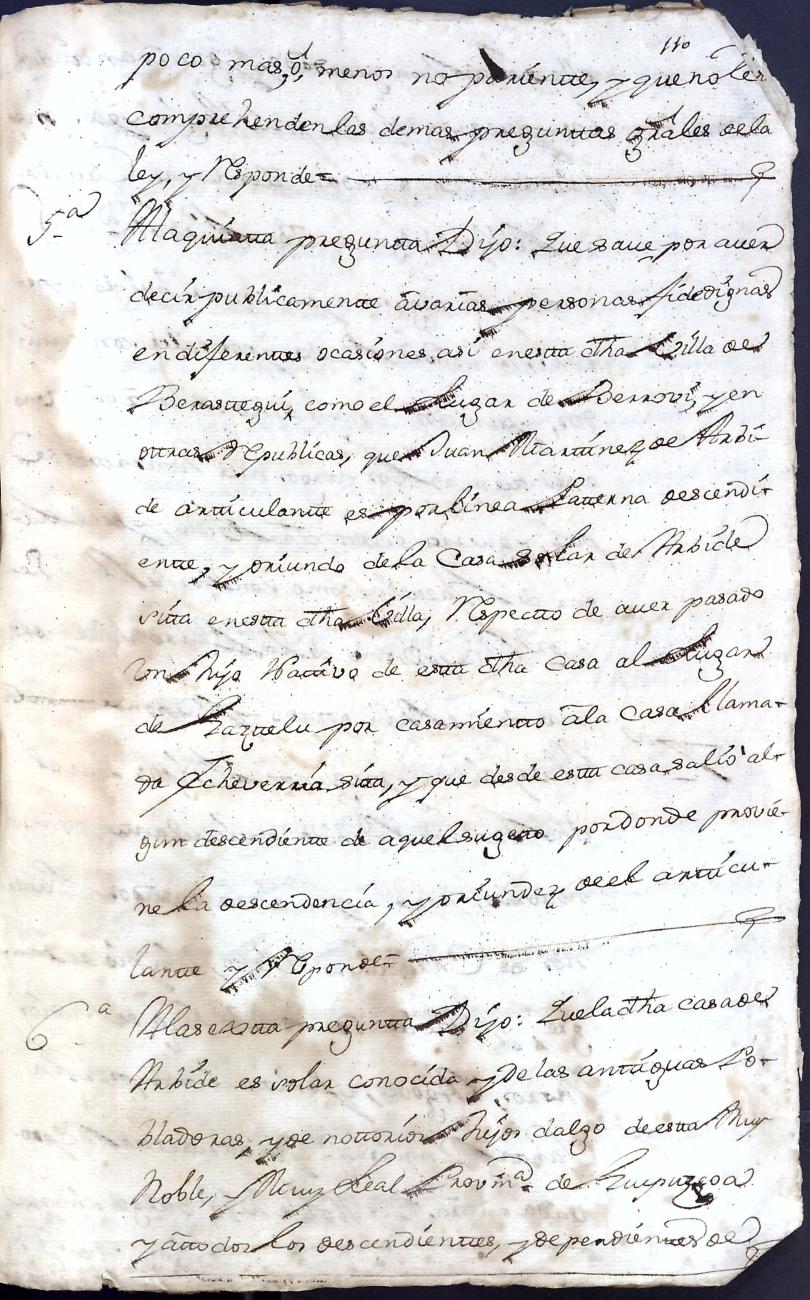 110
poco mas, ó, menos no pariente, y que no les
comprehenden las demas preguntas grâles de la
ley, y Responde =
5.a
A la quinta pregunta Dijo: Que save por aver
decir publicamente â varias personas fidedignas
en diferentes ocasiones, asi en esta dha Villa de
Berastegui, como el Lugar de Berrovi, y en
otras Republicas, que Juan Martinez de Arbi-
de articulante es por linea Paterna descendi-
ente, y oriundo de la Casa solar de Arbide
sita en esta dha Villa, Respecto de aver pasado
Un hijo Nativo de esta dha Casa al Lugar
de Gaztelu por casamiento â la Casa llama-
da Echeverria sita, y que desde esta casa salió al-
gun descendiente de aquel sugeto por donde provie-
ne la descendencia, y oriundez de el articu-
lante y Responde =
6.a
A la sexta pregunta Dijo: Que la dha casa de
Arbide es solar conocida y de las antiguas Po-
bladoras, y de nottorios hijos dalgo de esta Muy
Noble, y Muy Leal Provinª de Guipuzcoa
y â todos los descendientes, y dependientes de